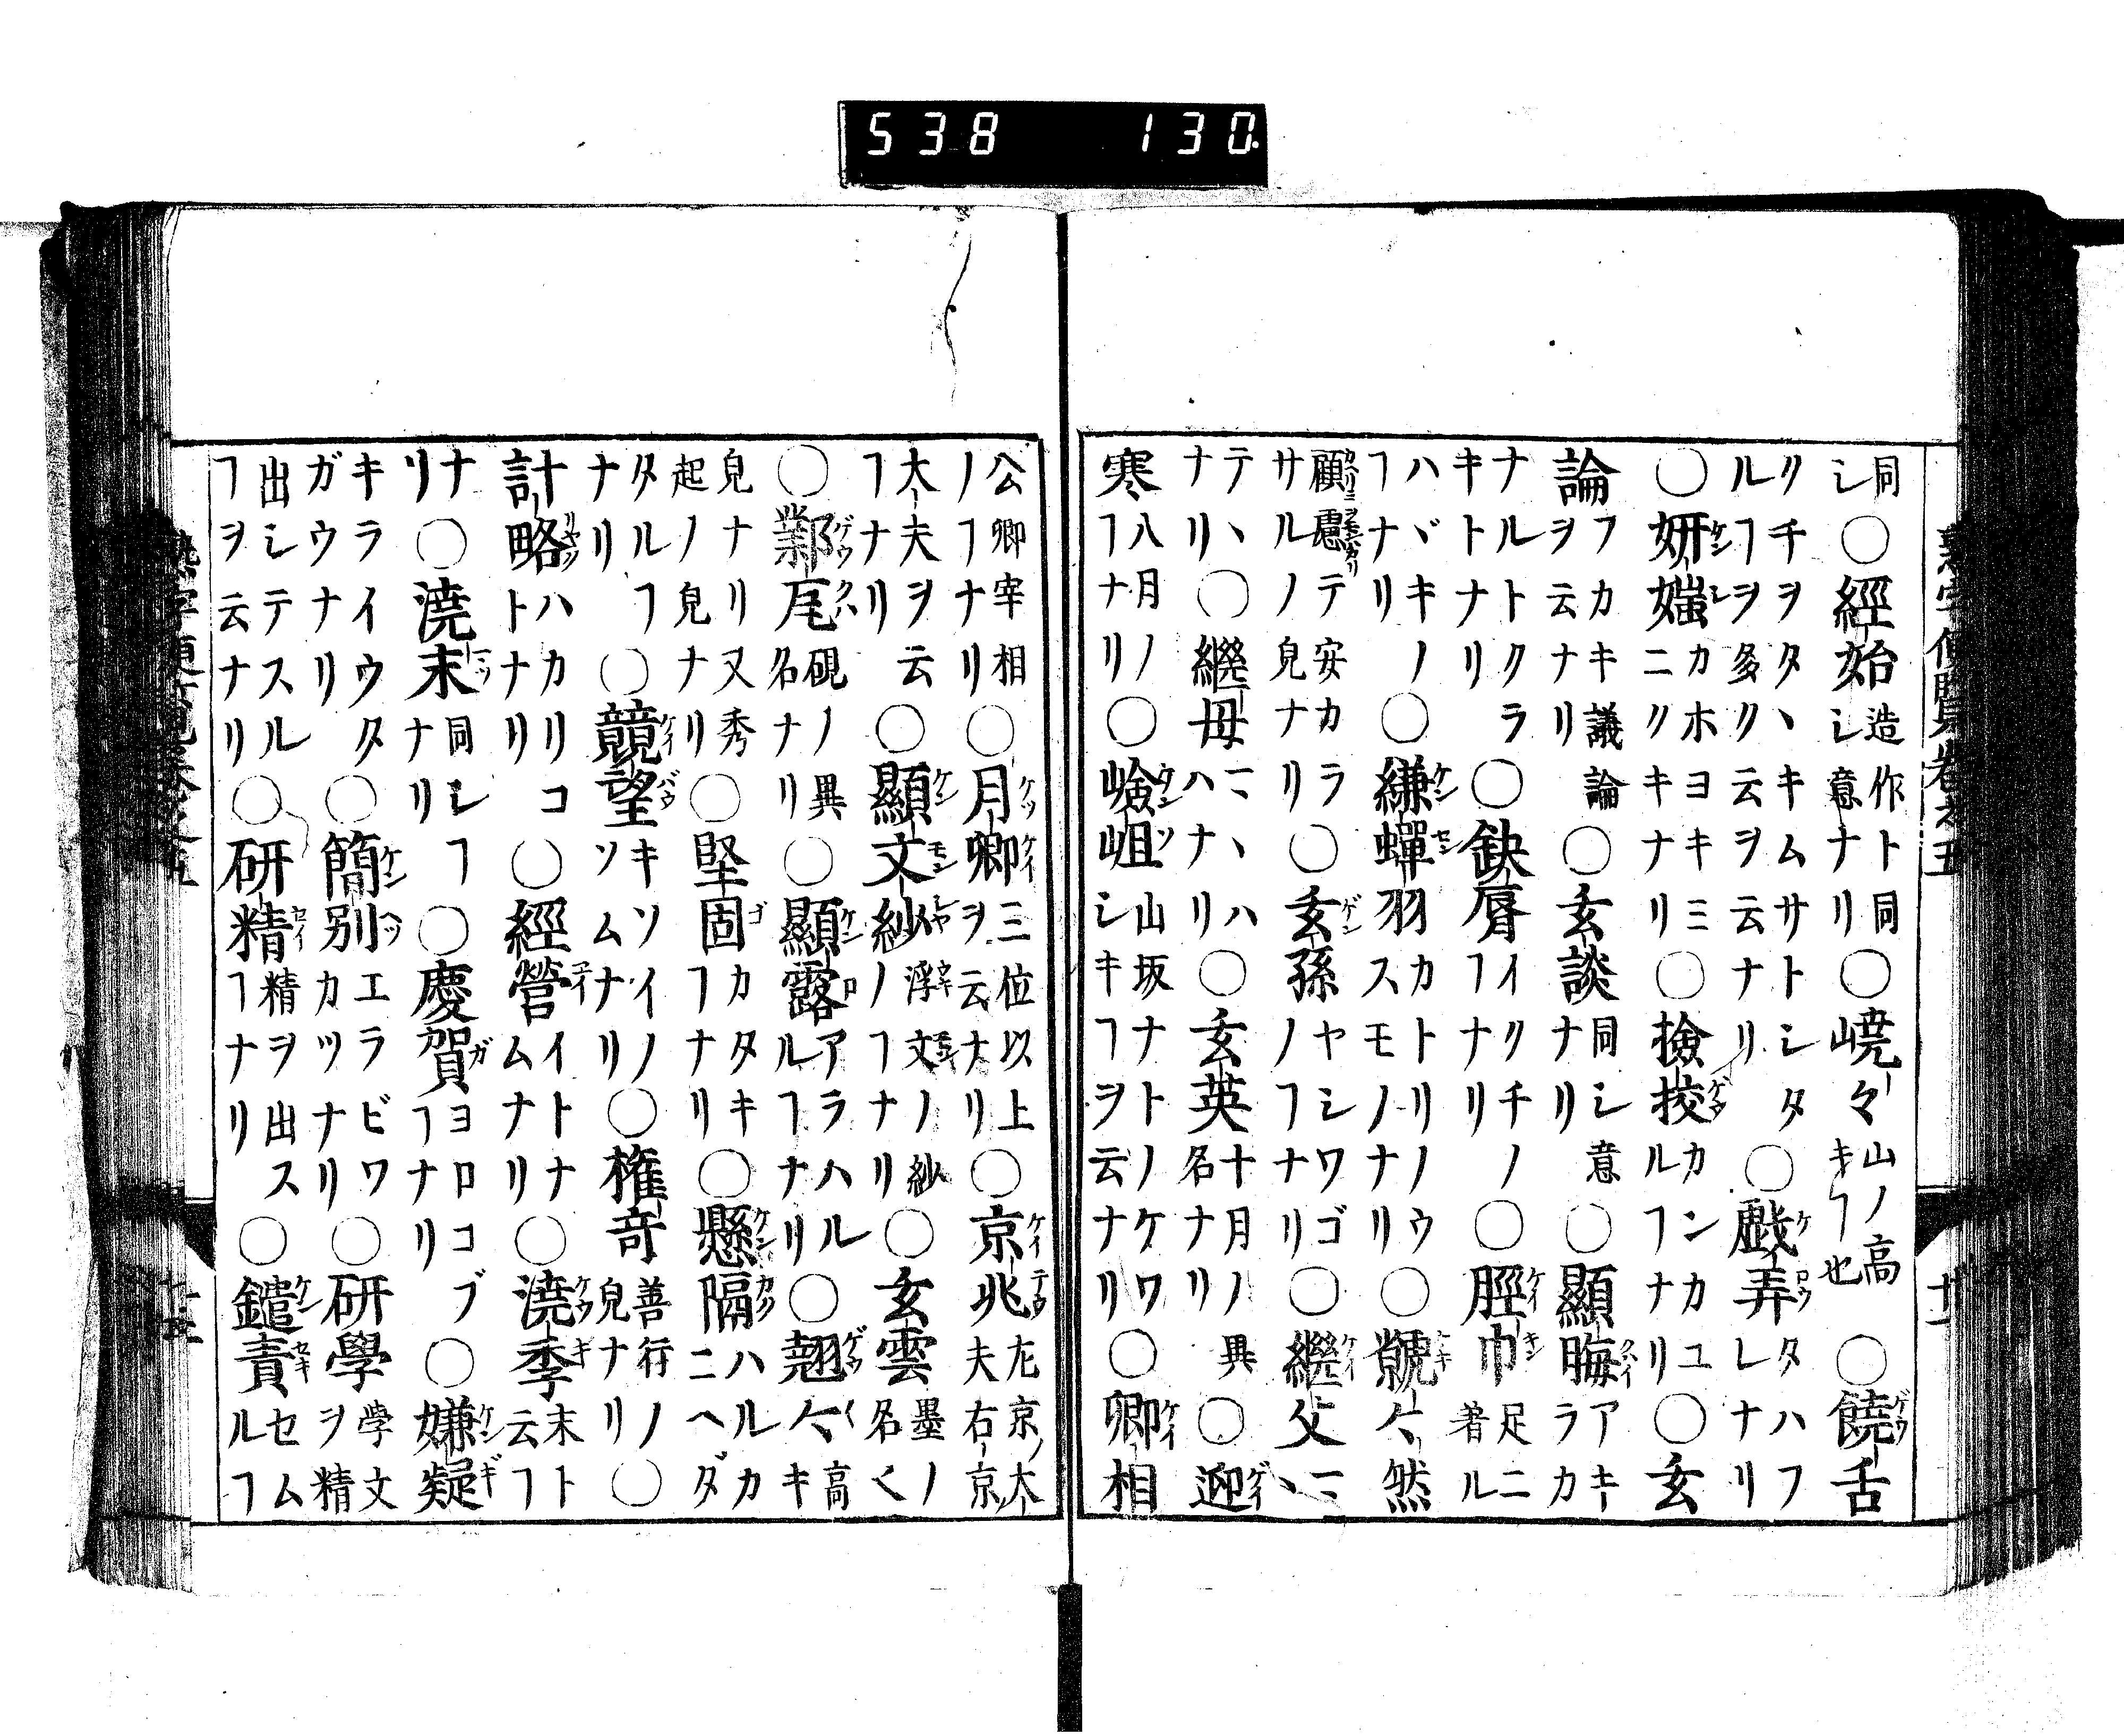 538 130
熟字便覧卷之五
同シ○經始造作ト同シ意ナリ○嶢々山ノ高キヿ也○饒舌
クチヲタヽキムサトシタルヿヲ多ク云ヲ云ナリ○戯弄タハフレナリ
○妍媸カホヨキミニクキナリ○撿挍カンカユルヿナリ○玄
論フカキ議論ヲ云ナリ○玄談同シ意ナリ○顯晦アキラカ
ナルトクラキトナリ○缺脣イクチノヿナリ○脛巾足ニ著ル
ハヾキノヿナリ○縑蟬羽カトリノウスモノナリ○覤々然
顧慮テ安カラサルノ皃ナリ○玄孫ヤシワゴノヿナリ○繼父マヽ
テヽナリ○繼母マヽハハナリ○玄英十月ノ異名ナリ○迎
寒八月ノヿナリ○嶮岨山坂ナトノケワシキヿヲ云ナリ○卿相
公卿宰相ノヿナリ○月卿三位以上ヲ云ナリ○京兆左京ノ大夫右京ノ大
大夫ヲ云フヿナリ○顯文紗浮文ノ紗ノヿナリ○玄雲墨ノ名
○鄴尾硯ノ異名ナリ○顯露アラハルルヿナリ○翹々高キ
皃ナリ又秀起ノ皃ナリ○堅固カタキヿナリ○懸隔ハルカニヘダ
タルヿナリ○競望キソイノソムナリ○権奇善行ノ皃ナリ○
計略ハカリコトナリ○經營イトナムナリ○澆季末ト云ヿ
ナリ○澆末同シヿナリ○慶賀ヨロコブヿナリ○嫌疑
キライウタガウナリ○簡別エラビワカツナリ○研學學文ヲ精
出シテスルヿヲ云ナリ○研精精ヲ出スヿナリ○鑓責セムルヿ